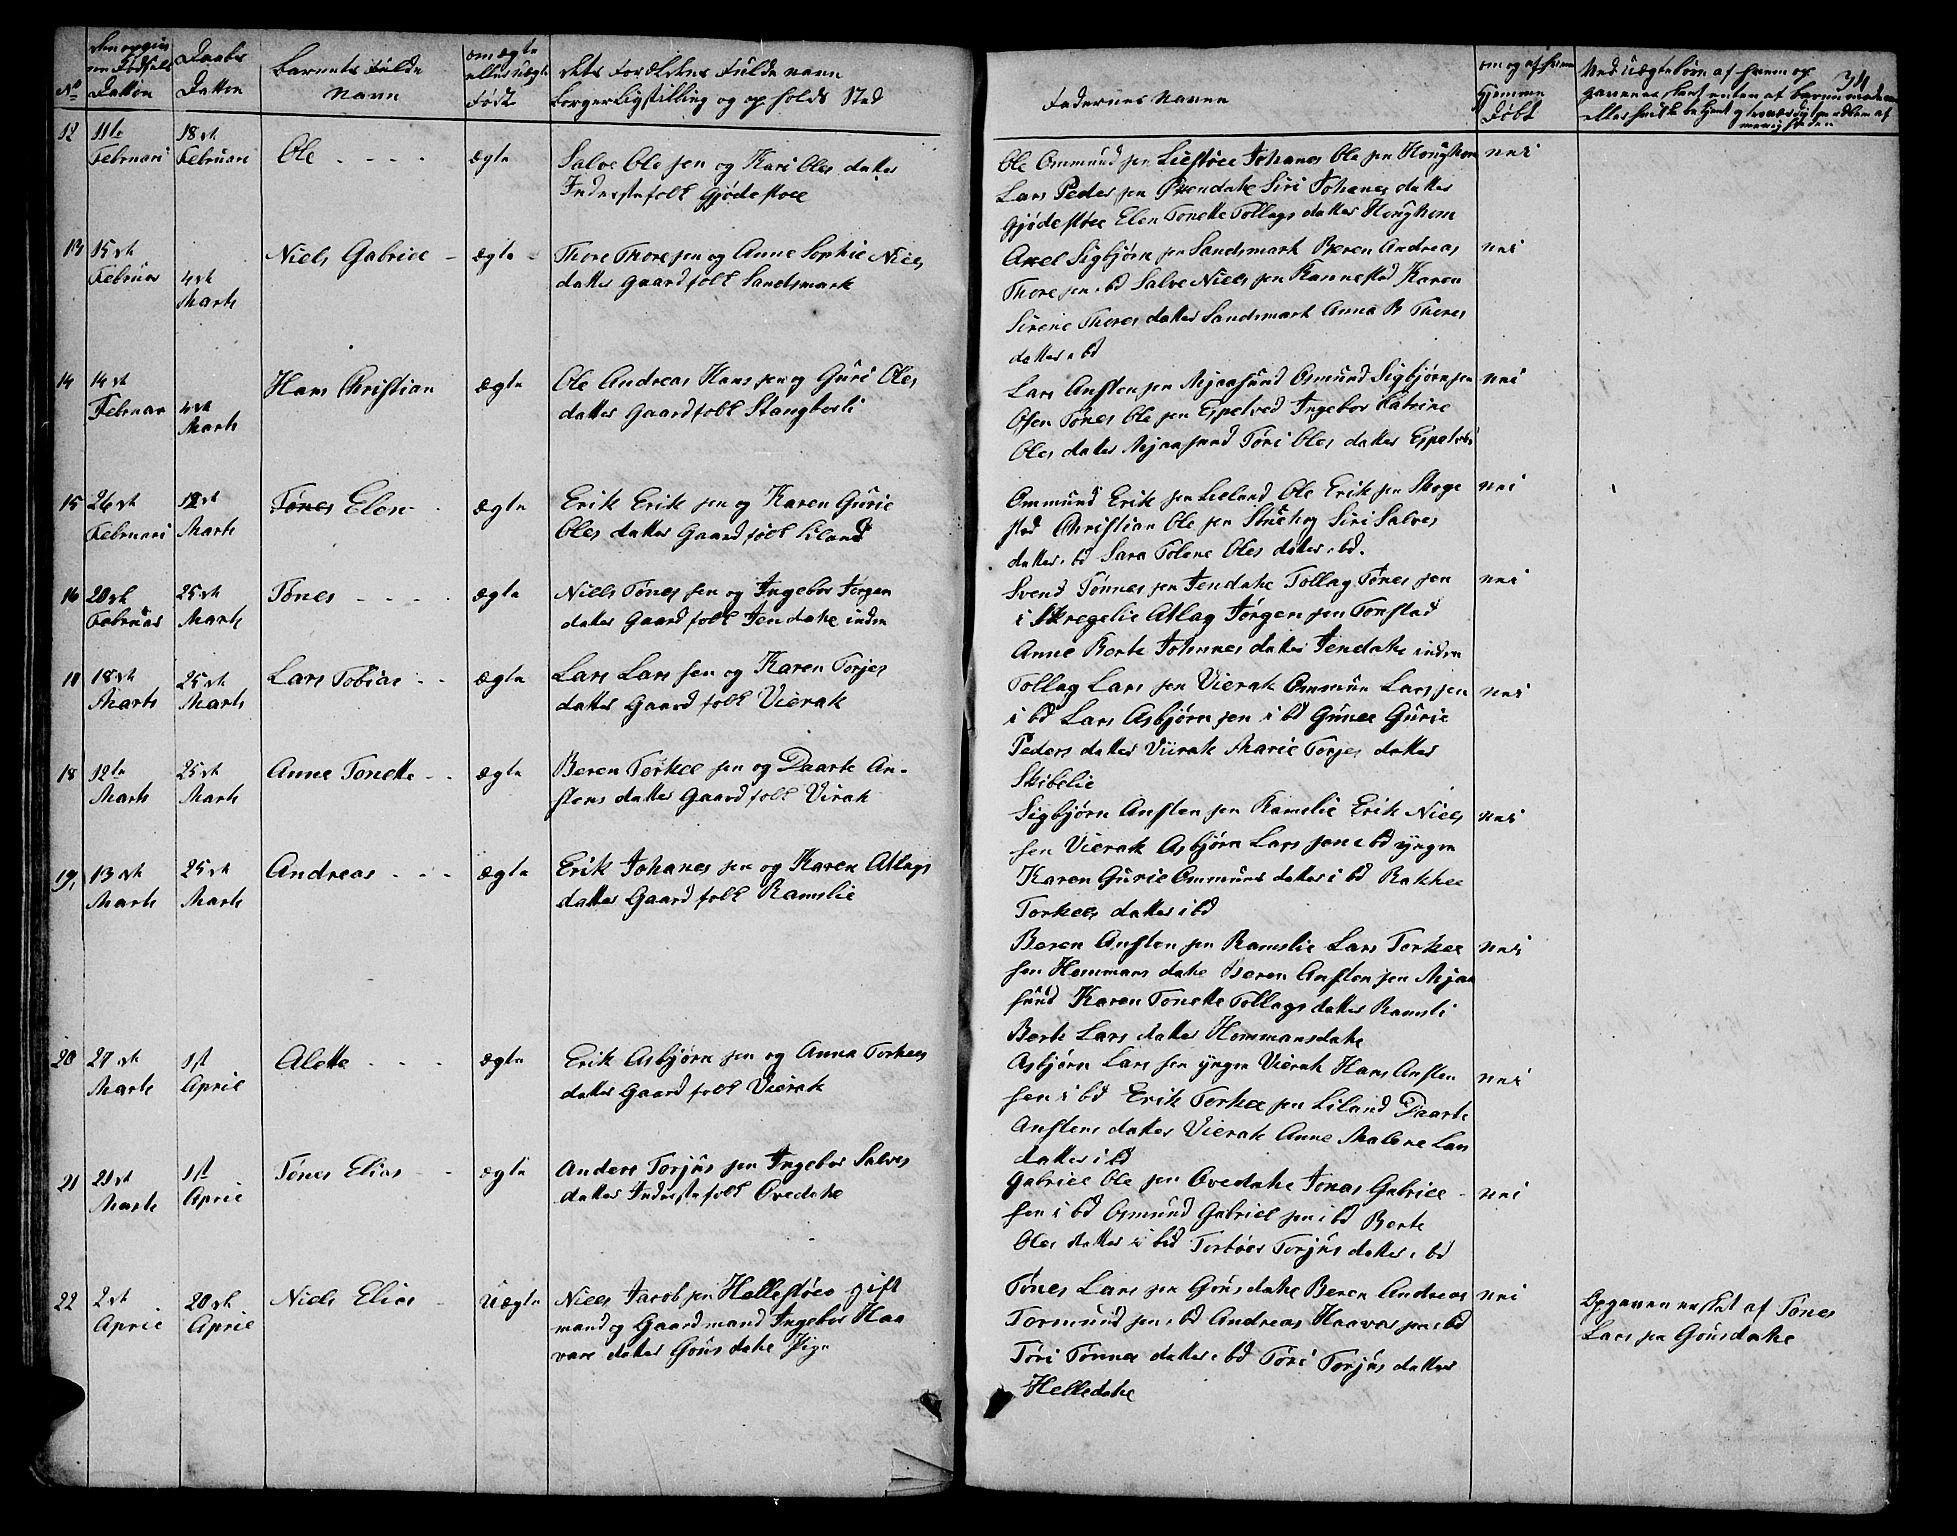 No
den opgiv
ne Fødsels
Datton
Daabs
Datton
barnets Fulde
Navn
om ægte
eller uægte
Født
dets Forældrens Fulde navn
borgerligstilling og opholds Sted
Faderners Navne
om og af hvem
Hjemme
Døbt
Ved uægtebørn af hvem op
34
12
11te
Februari
18de
Februari
Ole - - - -
ægte
Salve Ole sen og Kari Oles datter
Inderstefolk Gjødestoel
Ole Ommund sen Liestøel Johanes Ole sen Houghom
Lars Peder sen Siri Johanes datter
Gjødestoel Elen Tonette Tollags datter Houghom
nei
13
15de
Februar
4de
Marts
Niels Gabriel -
ægte
Thore Thore sen og Anne Sophie Niels
datter Gaardfolk Sandsmark
Axel Sigbjørn sen Sandsmark Beren Andreas
Thore sen ibd Salve Niels sen Rannestad Karen
Sirene Thores datter Sandsmark Anna B Thores
datter i bd
nei
14
14de
Februar
4de
Marts
Hans Christian
ægte
Ole Andreas Hans sen og Guri Oles
datter Gaardfolk Stangborli
Lars Ansten sen Mjaasund Osmund Sigbjørn sen
Osen Tønes Ole sen Espetved Ingebor Katrine
Oles datter Mjaasund Tøri Oles datter Espetved
nei
15
26de
Februari
18de
Marts
Tønes Elen -
ægte
Erik Erik sen og Karen Gurie
Oles datter Gaardfolk Liland
Ommund Erik sen Lieland Ole Erik sen Skoge
stad Christian Ole sen Siri Salves
datter i bd Sara Tolene Oles datter i bd.
nei
16
20de
Februar
25de
Marts
Tønes - - - -
ægte
Niels Tønes sen og Ingebor Jørgen
datter Gaardfolk Jendahl indre
Svend Tønnes sen Jendahl Tollag Tønes sen
i Skregelie Atlag Jørgen sen Tonstad
Anne Berte Johannes datter Jendahl indre
nei
17
18de
Marts
25de
Marts
Lars Tobias - -
ægte
Lars Lars sen og Karen Torjes
datter Gaardfolk Vierak
Tollag Lars sen Vierak Ommun Lars sen
i bd Lars Asbjørn sen i bd Gunel Gurie
Peders datter Viirak Marie Torjes datter
Skibelie
nei
18
12te
Marts
25de
Marts
Anne Tonette - -
ægte
Beren Torkel sen og Daarte An-
stens datter Gaardfolk Virak
Sigbjørn Ansten sen Ramslie Erik Niels
sen Vierak Asbjørn Lars sen i bd yngre
Karen Gurie Ommuns datter i bd Rakkel
Torkels datter i bd
nei
19,
13de
Marts
25de
Marts
Andreas - - -
ægte
Erik Johanes sen og Karen Atlags
datter Gaardfolk Ramslie
Beren Ansten sen Ramslie Lars Torkel
sen Hommans dahl Beren Ansten sen Mjaa
sund Karen Tonette Tollags datter Ramsli
Berte Lars datter Hommansdahl
nei
20
27de
Marts
1st
April
Alette - - -
ægte
Erik Asbjørn sen og Anna Torkels
datter Gaardfolk Vierak
Asbjørn Lars sen yngre Vierak Hans Ansten
sen i bd Erik Torkel sen Liland Daarte
Anstens datter Vierak Anne Malene Lars
datter i bd
nei
21
21de
Marts
1st
April
Tønes Elias - -
ægte
Anders Torjus sen Ingebor Salves
datter Inderstefolk Ovedahl
Gabriel Ole sen Ovedahl Jonas Gabriel -
sen i bd Osmund Gabriel sen i bd Berte
Oles datter i bd Torbør Torjus datter i bd
nei
22
2de
April
20de
April
Niels Elias -
Uægte
Niels Jacob sen Hellestøes gift
mand og Gaardmand Ingebor Haa
vars datter Gousdahl Pige
Tønes Lars sen Gousdahl Beren Andreas
Tormund sen i bd Andreas Haavor sen i bd
Tøri Tønnes datter i bd Tøri Torjus datter
Helledahl
nei
Opgaven skeet af Tønes
Lars sen Gousdahl